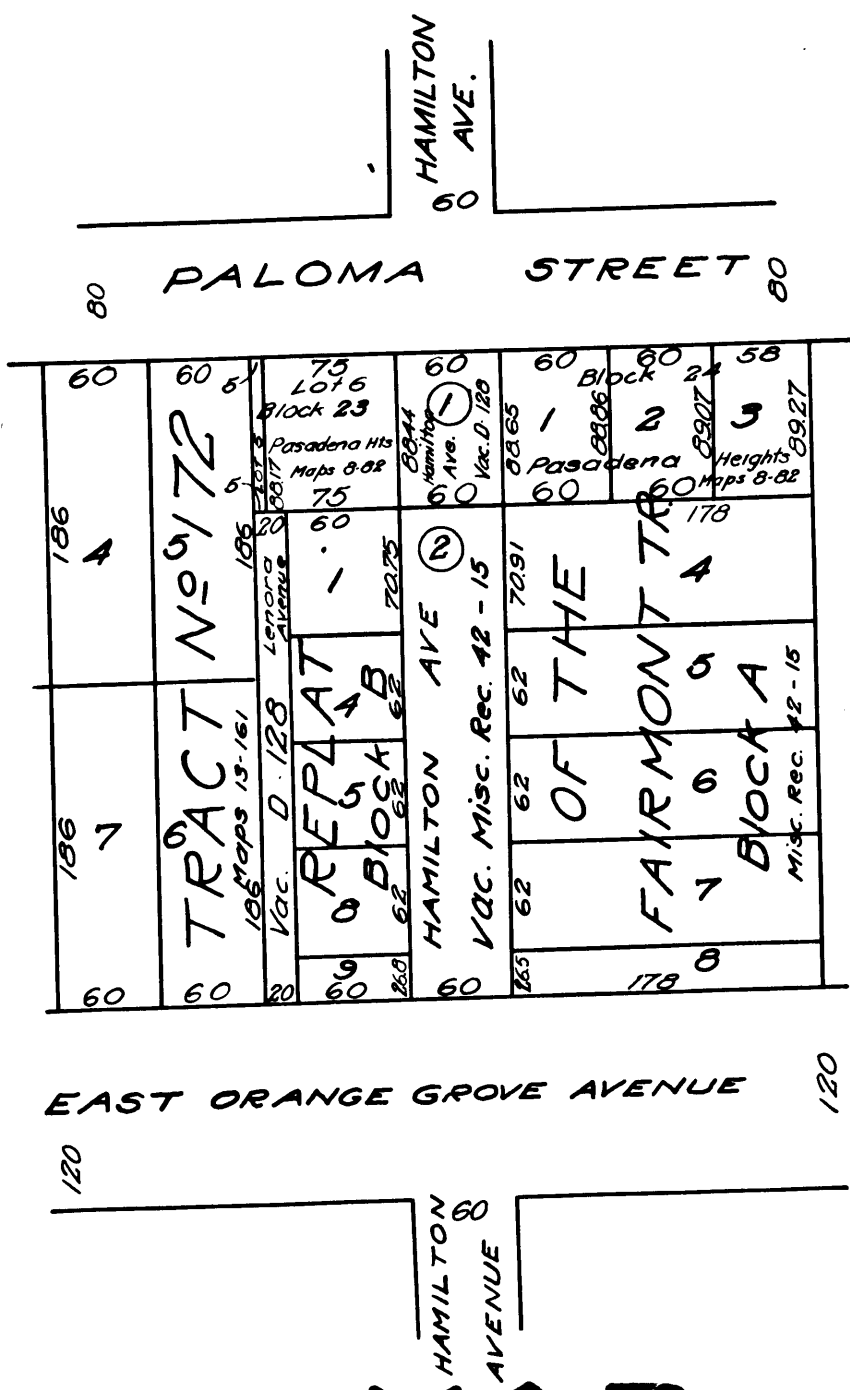 HAMILTON
AVE.
60
PALOMA STREET
80
80
60
60
5
75
60
60
60
58
Lot 6
Block 23
Pasadena Hts
Maps 8-82
75
Lot 5
88.17
5
88.44
Hamilton
Ave.
1
Vac. D. 128
60
88.65
1
88.86
Block 24
2
89.07
3
89.27
Pasadena Heights
Maps 8-82
60
60
178
186
4
5
186
TRACT No 172
Maps 13-161
20
Lenora
Avenue
Vac. D. 128
60
1
70.75
REPLAT
BLOCK B
4
62
5
62
8
62
9
26.8
2
HAMILTON AVE
Vac. Misc. Rec. 42-15
70.91
4
62
5
62
6
62
7
26.5
8
OF THE
FAIRMONT TR.
BLOCK A
Misc. Rec. 42-15
186
7
6
186
60
60
20
60
60
178
EAST ORANGE GROVE AVENUE
120
120
60
HAMILTON
AVENUE